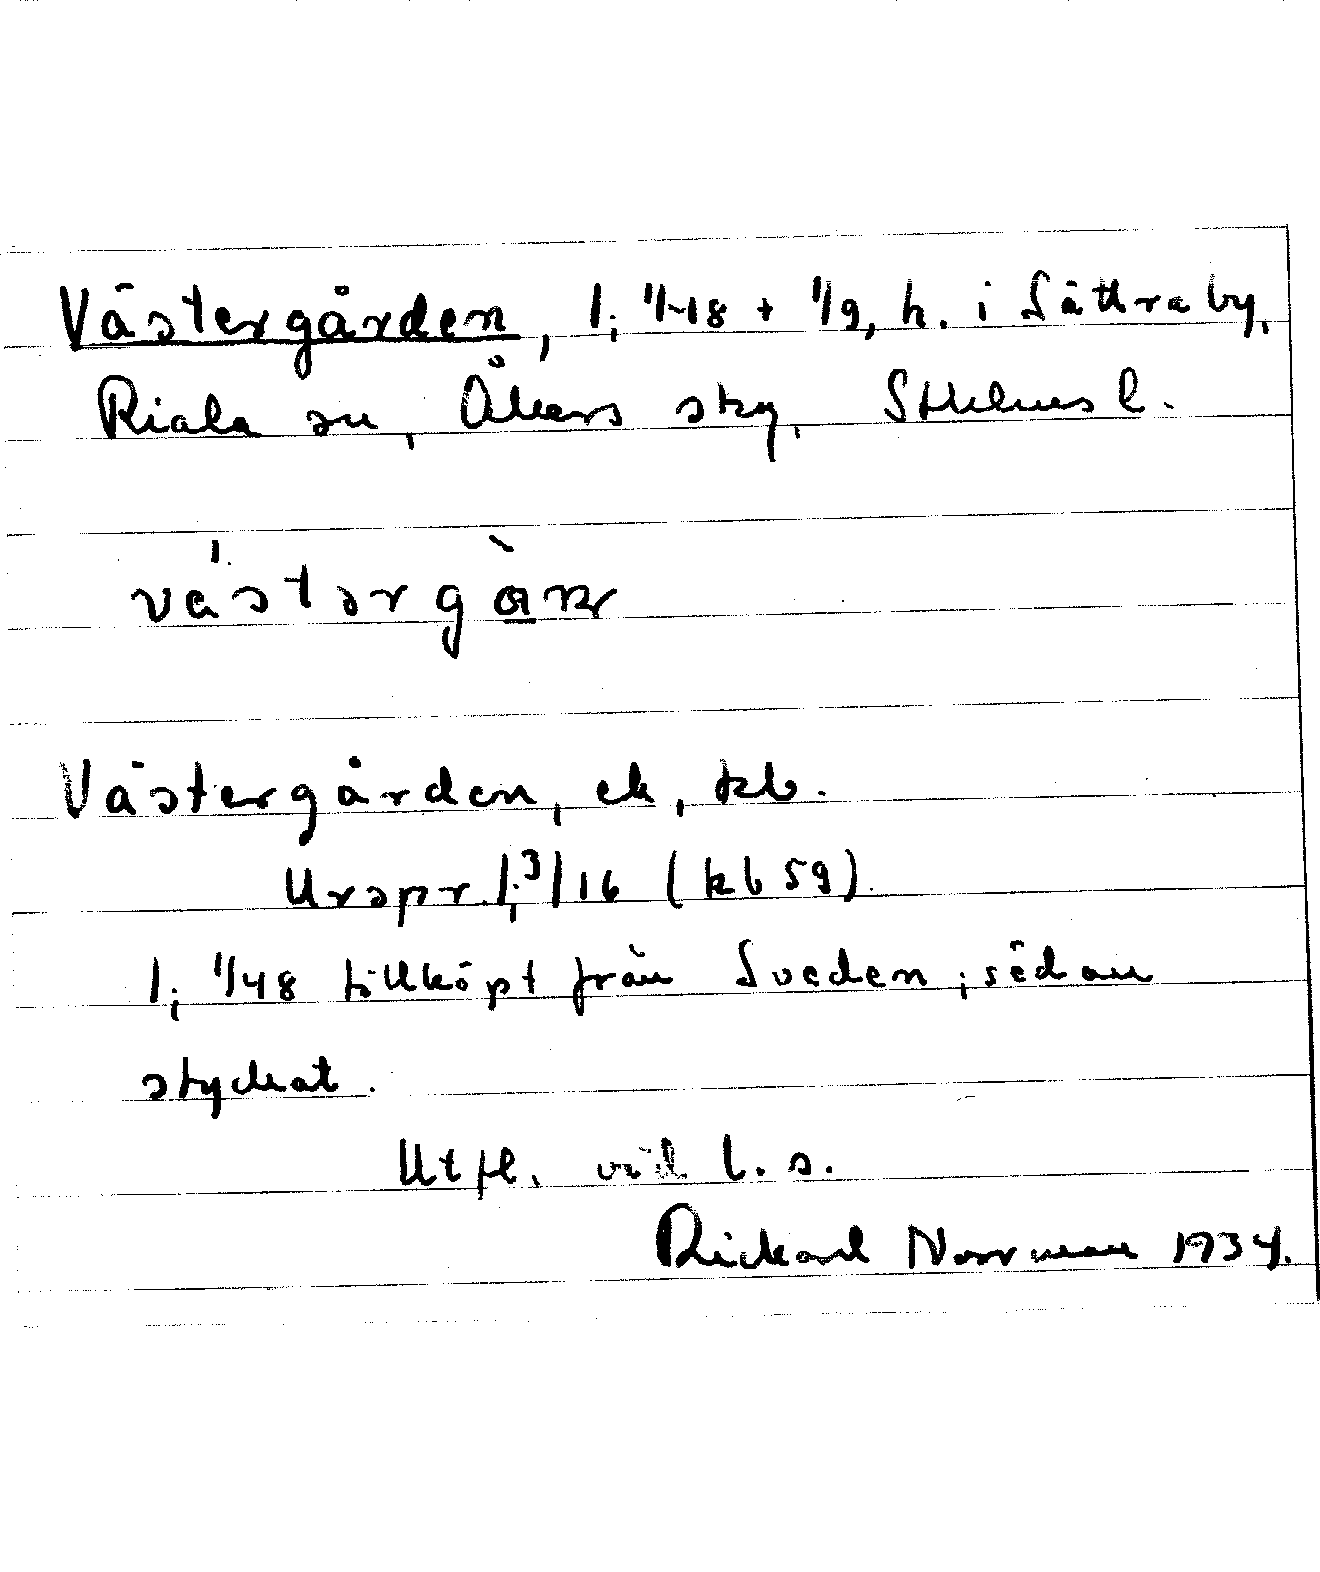 Västergården, 1; 1/48 + 1/9, h. i Sättraby,
Riala sn, Åkers skg, Sthlms l.
västərgɑ̀ɳ
Västergården, ek, kb.
Urspr. 1; 3/16 (kb 59).
1; 1/48 tillköpt från Sveden; sedan
styckat.
Utfl. vid l. s.
Rickard Norrman 1934.